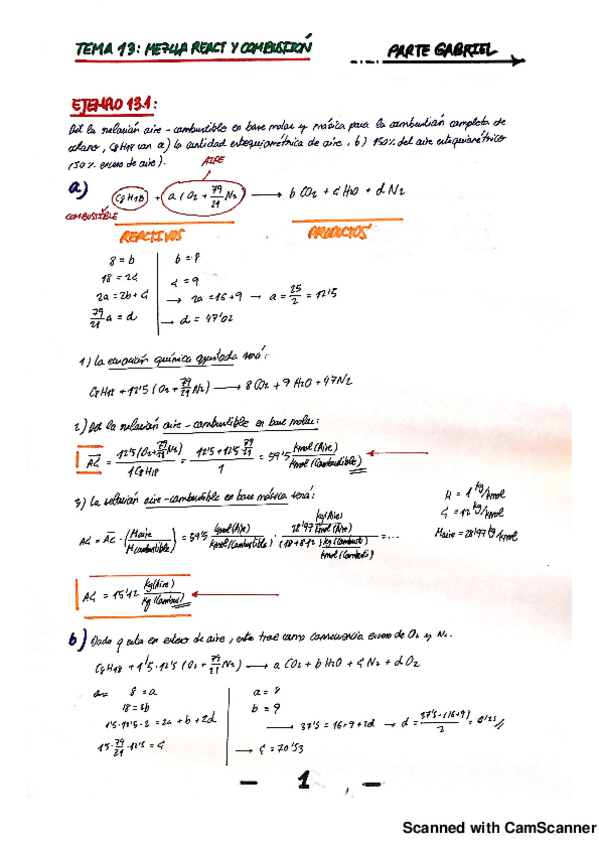 TEMA 13: MEZCLA REACT Y COMBUSTIÓN
PARTE GABRIEL
EJEMPLO 13.1:
Det la relación aire-combustible en base molar y másica para la combustión completa de
octano, C8H18 con a) la cantidad estequiométrica de aire, b) 150% del aire estequiométrico
(50% exceso de aire).
AIRE
a) C8H18 + a (O2 + 79/21 N2) ⟶ b CO2 + c H2O + d N2
COMBUSTIBLE
REACTIVOS
PRODUCTOS
8 = b
b = 8
18 = 2c
c = 9
2a = 2b + c
→ 2a = 16 + 9 → a = 25/2 = 12'5
79/21 a = d
→ d = 47'02
1) La ecuación química ajustada será:
C8H18 + 12'5 (O2 + 79/21 N2) ⟶ 8 CO2 + 9 H2O + 47 N2
2) Det la relación aire-combustible en base molar:
AC = 12'5 (O2 + 79/21 N2) / 1 C8H18 = 12'5 + 12'5 79/21 / 1 = 59'5 kmol (Aire) / kmol (Combustible)
3) La relación aire-combustible en base másica será:
H = 1 kg/kmol
C = 12 kg/kmol
Maire = 28'97 kg/kmol
AC = AC · (Maire / Mcombustible) = 59'5 kmol (Aire) / kmol (Combustible) · 28'97 kg (Aire) / kmol (Aire) / (18 + 8·12) kg (Combust) / kmol (Combust) = ...
AC = 15'12 kg (Aire) / kg (Combust)
b) Dado q esta en exceso de aire, este trae como consecuencia exceso de O2 y N2.
C8H18 + 1'5 · 12'5 (O2 + 79/21 N2) ⟶ a CO2 + b H2O + c N2 + d O2
8 = a
a = 8
18 = 2b
b = 9
1'5 · 12'5 · 2 = 2a + b + 2d
⟶ 37'5 = 16 + 9 + 2d → d = 37'5 - (16 + 9) / 2 =
1'5 · 79/21 · 12'5 = c
→ c = 70'53
1
Scanned with CamScanner